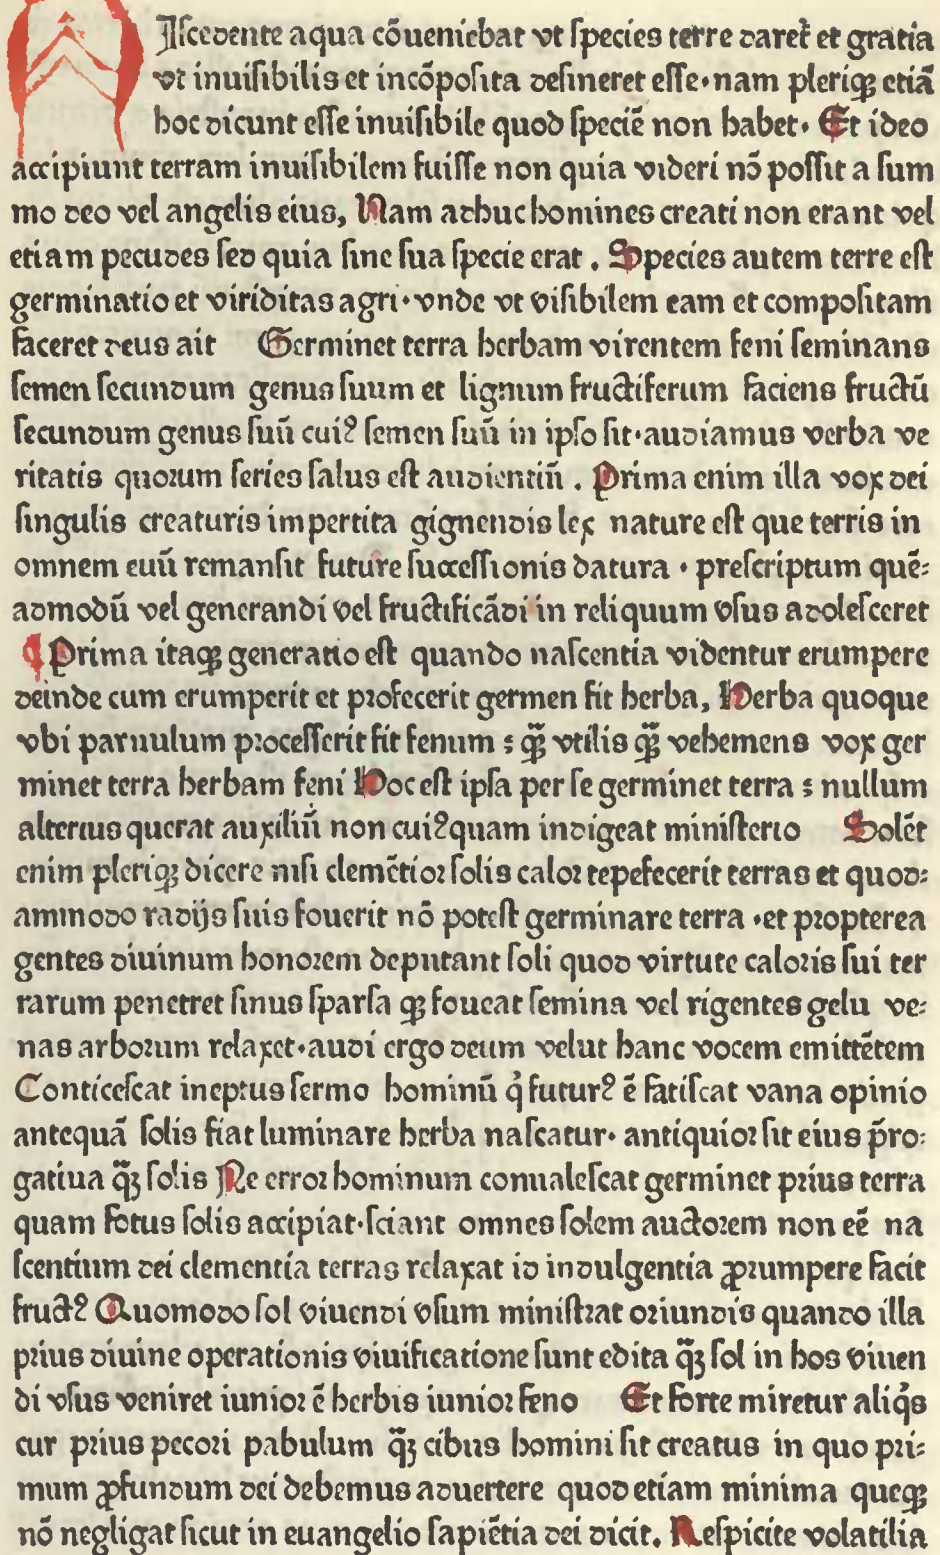 Iſcedente aqua cōueniebat vt ſpecies terre daret̉ et gratia
vt inuiſibilis et incōpoſita deſineret eſſe·nam pleriqꝫ etiā
hoc dicunt eſſe inuiſibile quod ſpeciē non habet· Et ideo
accipiunt terram inuiſibilem fuiſſe non quia videri nō poſſit a ſum
mo deo vel angelis eius, Nam adhuc homines creati non erant vel
etiam pecudes ſed quia ſine ſua ſpecie erat . Species autem terre eſt
germinatio et viriditas agri·vnde vt viſibilem eam et compoſitam
faceret deus ait Germinet terra herbam virentem feni ſeminans
ſemen ſecundum genus ſuum et lignum fructiferum faciens fructū
ſecundum genus ſuū cuiꝰ ſemen ſuū in ipſo ſit·audiamus verba ve
ritatis quoꝛum ſeries ſalus eſt audientiū . Prima enim illa vox dei
ſingulis creaturis impertita gignendis lex nature eſt que terris in
omnem euū remanſit future ſucceſſionis datura · preſcriptum quē⸗
admodū vel generandi vel fructificādi in reliquum vſus adoleſceret
¶ Prima itaqꝫ generatio eſt quando naſcentia videntur erumpere
deinde cum erumperit et pꝛofecerit germen fit herba, Herba quoque
vbi paruulum pꝛoceſſerit fit fenum ; qꝫ̄ vtilis qꝫ̄ vehemens vox ger
minet terra herbam feni Hoc eſt ipſa per ſe germinet terra ; nullum
alterius querat auxiliū non cuiꝰquam indigeat miniſterio Solēt
enim pleriqꝫ dicere niſi clemētioꝛ ſolis caloꝛ tepefecerit terras et quod⸗
ammodo radijs ſuis fouerit nō poteſt germinare terra ·et pꝛopterea
gentes diuinum honoꝛem deputant ſoli quod virtute caloꝛis ſui ter
rarum penetret ſinus ſparſa qꝫ foueat ſemina vel rigentes gelu ve⸗
nas arboꝛum relaxet·audi ergo deum velut hanc vocem emittētem
Conticeſcat ineptus ſermo hominū q̇ futurꝰ ē fatiſcat vana opinio
antequā ſolis fiat luminare herba naſcatur· antiquioꝛ ſit eius p̄ro⸗
gatiua qꝫ̄ ſolis Ne erroꝛ hominum conualeſcat germinet pꝛius terra
quam fotus ſolis accipiat·ſciant omnes ſolem auctoꝛem non eē na
ſcentium dei clementia terras relaxat id indulgentia ꝓꝛumpere facit
fructꝰ Quomodo ſol viuendi vſum miniſtrat oꝛiundis quando illa
pꝛius diuine operationis viuificatione ſunt edita qꝫ̄ ſol in hos viuen
di vſus veniret iunioꝛ ē herbis iunioꝛ feno Et foꝛte miretur aliq̇s
cur pꝛius pecoꝛi pabulum qꝫ̄ cibus homini ſit creatus in quo pꝛi⸗
mum ꝓfundum dei debemus aduertere quod etiam minima queqꝫ
nō negligat ſicut in euangelio ſapiētia dei dicit. Reſpicite volatilia